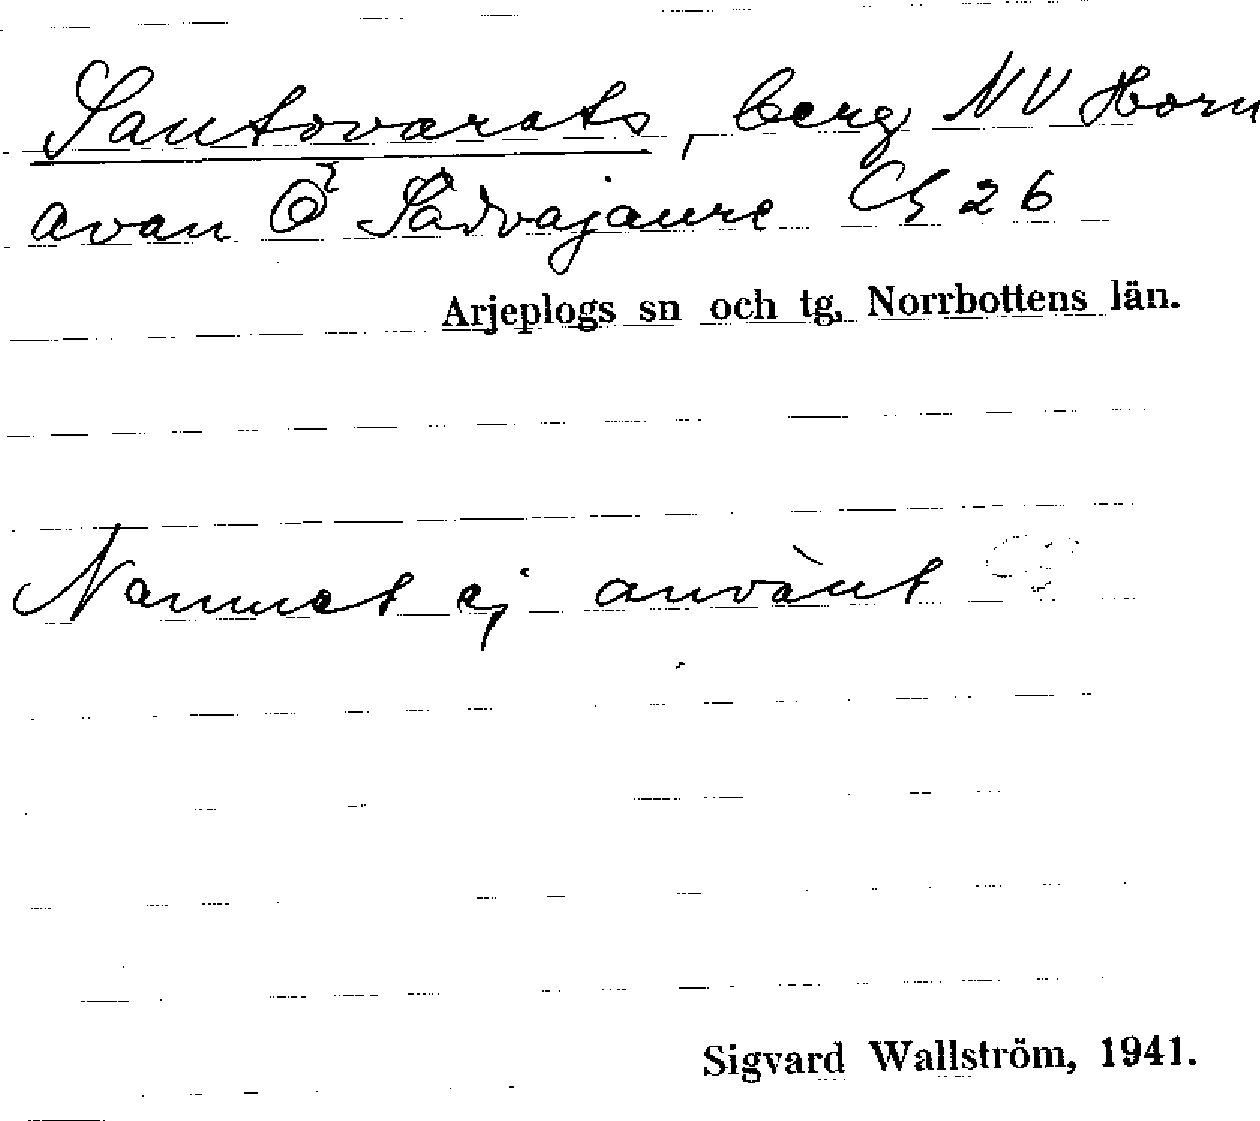 Sautovarats, berg NV Horn
avan Ö Sädvajaure Gb 26
Arjeplogs sn och tg, Norrbottens län.
Namnet ej använt
Sigvard Wallström, 1941.